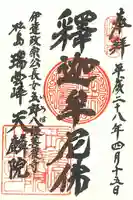 奉拝　平成二八年四月十五日
釋迦牟尼佛
伊達政宗公長女五郎八姫菩提寺
松島　瑞雲峰　天麟院